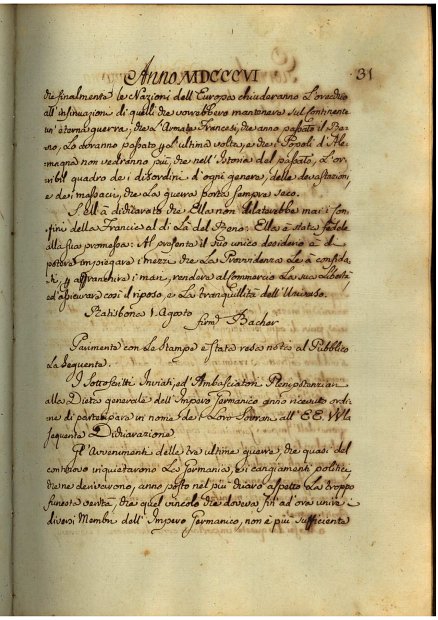 Anno MDCCCVI
31
che finalmente le Nazioni dell'Europa chiuderanno l'orecchio
all'insinuazioni di quelli che vorrebbero mantenere sul Continente
un'eterna guerra, che l'Armate Francesi, che anno passato il Re-
no, lo avranno passato p l'ultima volta, e che i Popoli d'Ale-
magna non vedranno più, che nell'Istoria del passato, l'or-
ribil quadro de i disordini d'ogni genere, delle devastazioni,
e de i massacri, che la guerra porta sempre seco.
S. M. à dichiarato che Ella non dilaterebbe mai i Con-
fini della Francia al di là del Reno. Ella è stata fedele
alla sua promessa: Al presente il suo unico desiderio è di
potere impiegare i mezzi che la Provvidenza Le à confida-
ti, p affranchire i mari, rendere al Commercio la sua Libertà,
ed assicurare così il riposo, e la tranquillità dell'Universo.
Ratisbona 1. Agosto
firm. Bacher
Parimente con le Stampe è stata resa nota al Pubblico
la seguente.
I Sottoscritti Inviati, ed Ambasciatori Plenipotenziari
alla Dieta generale dell'Impero Germanico anno ricevuto ordi-
ne di partecipare in nome de i Loro Sovrani all'E.E. V.V. la
seguente Dichiarazione
Gl'Avvenimenti delle tre ultime guerre, che quasi del
continovo inquietarono la Germania, e i cangiamenti politici
che ne derivarono, anno posto nel più chiaro aspetto la troppo
funesta verità, che quel vincolo che doveva fin'ad ora unire i
diversi Membri dell'Impero Germanico, non è più sufficiente